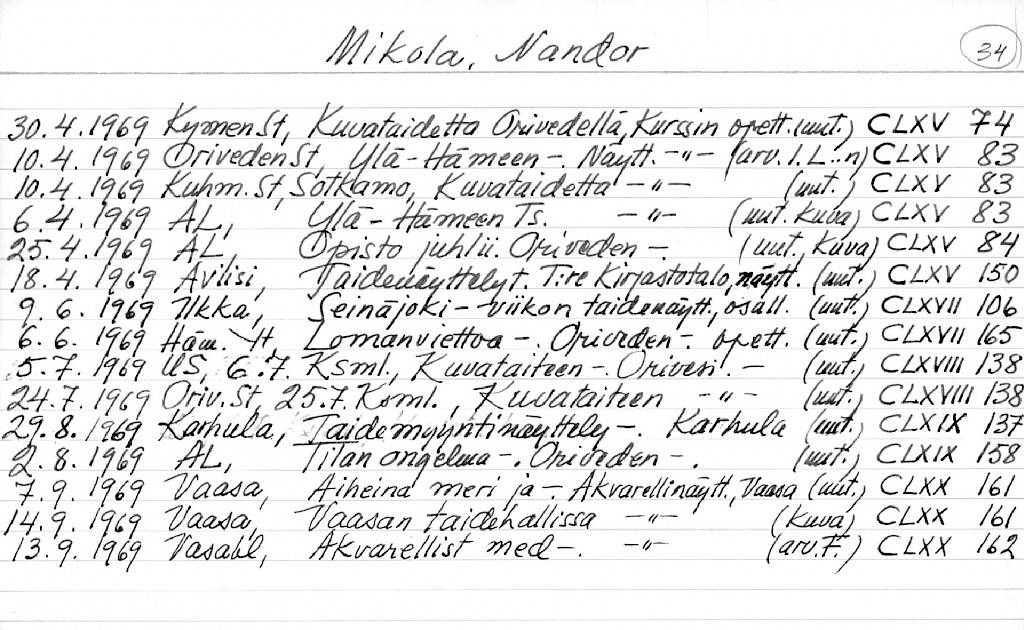 Mikola, Nandor
34
30.4.1969 Kymen St, Kuvataidetta Orivedellä, Kurssin opett. (uut.) CLXV 74
10.4.1969 Oriveden St, Ylä-Hämeen -. Näytt. -"- (arv. I.L..n) CLXV 83
10.4.1969 Kuhm. St, Sotkamo, Kuvataidetta -"- (uut.) CLXV 83
6.4.1969 AL, Ylä-Hämeen Ts. -"- (uut. kuva) CLXV 83
25.4.1969 AL, Opisto juhlii. Oriveden -. (uut., kuva) CLXV 84
18.4.1969 Avilisi, Taidenäyttelyt. T:re Kirjastotalo, näytt. (uut.) CLXV 150
9.6.1969 Ilkka, Seinäjoki-viikon taidenäytt., osall. (uut.) CLXVII 106
6.6.1969 Häm. Yt, Lomanviettoa -. Oriveden -. opett. (uut.) CLXVII 165
5.7.1969 US, 6.7. Ksml., Kuvataiteen -. Orivesi. - (uut.) CLXVIII 138
24.7.1969 Oriv. St, 25.7. Ksml., Kuvataiteen -"- (uut.) CLXVIII 138
29.8.1969 Karhula, Taidemyyntinäyttely -. Karhula (uut.) CLXIX 137
2.8.1969 AL, Tilan ongelma -. Oriveden -. (uut.) CLXIX 158
7.9.1969 Vaasa, Aiheina meri ja -. Akvarellinäytt., Vaasa (uut.) CLXX 161
14.9.1969 Vaasa, Vaasan taidehallissa -"- (kuva) CLXX 161
13.9.1969 Vasabl, Akvarellist med -. -"- (arv. F.) CLXX 162